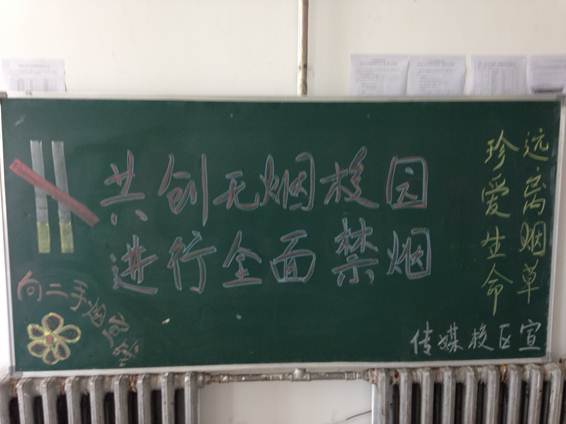 共创无烟校园
进行全面禁烟
远离烟草
珍爱生命
向二手烟
传媒校区宣